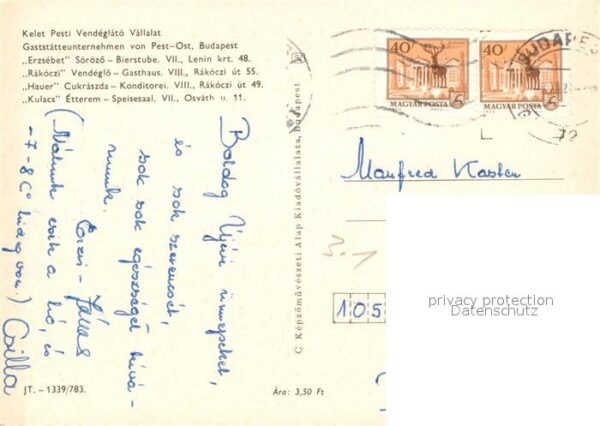 Kelet Pesti Vendéglátó Vállalat
Gaststätteunternehmen von Pest-Ost, Budapest
„Erzsébet" Söröző - Bierstube. VII., Lenin krt. 48.
„Rákóczi" Vendéglő - Gasthaus. VIII., Rákóczi út 55.
„Hauer" Cukrászda - Konditorei. VIII., Rákóczi út 49.
„Kulacs" Étterem - Speisesaal. VII., Osváth u. 11.
Boldog Újévi ünnepeket,
és sok szerencsét,
sok sok egészséget kívá-
nunk.
Őzzi - János
(Nálunk esik a hó, és
-7-8C° hideg van.) Csilla
JT. - 1339/783.
Ára: 3,50 Ft
C Képzőművészeti Alap Kiadóvállalata, Budapest
40f
MAGYAR POSTA
40f
MAGYAR POSTA
BUDAPE
L
72
Manfred Kasten
3.1
105
privacy protection
Datenschutz